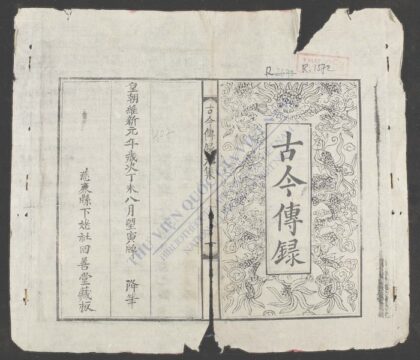 R.1572
古今傳録
古今傳録
皇朝維新元年歲次丁未八月望寅牌
降筆
慈廉縣下池社回善堂藏板
THƯ VIỆN QUỐC GIA VIỆT NAM